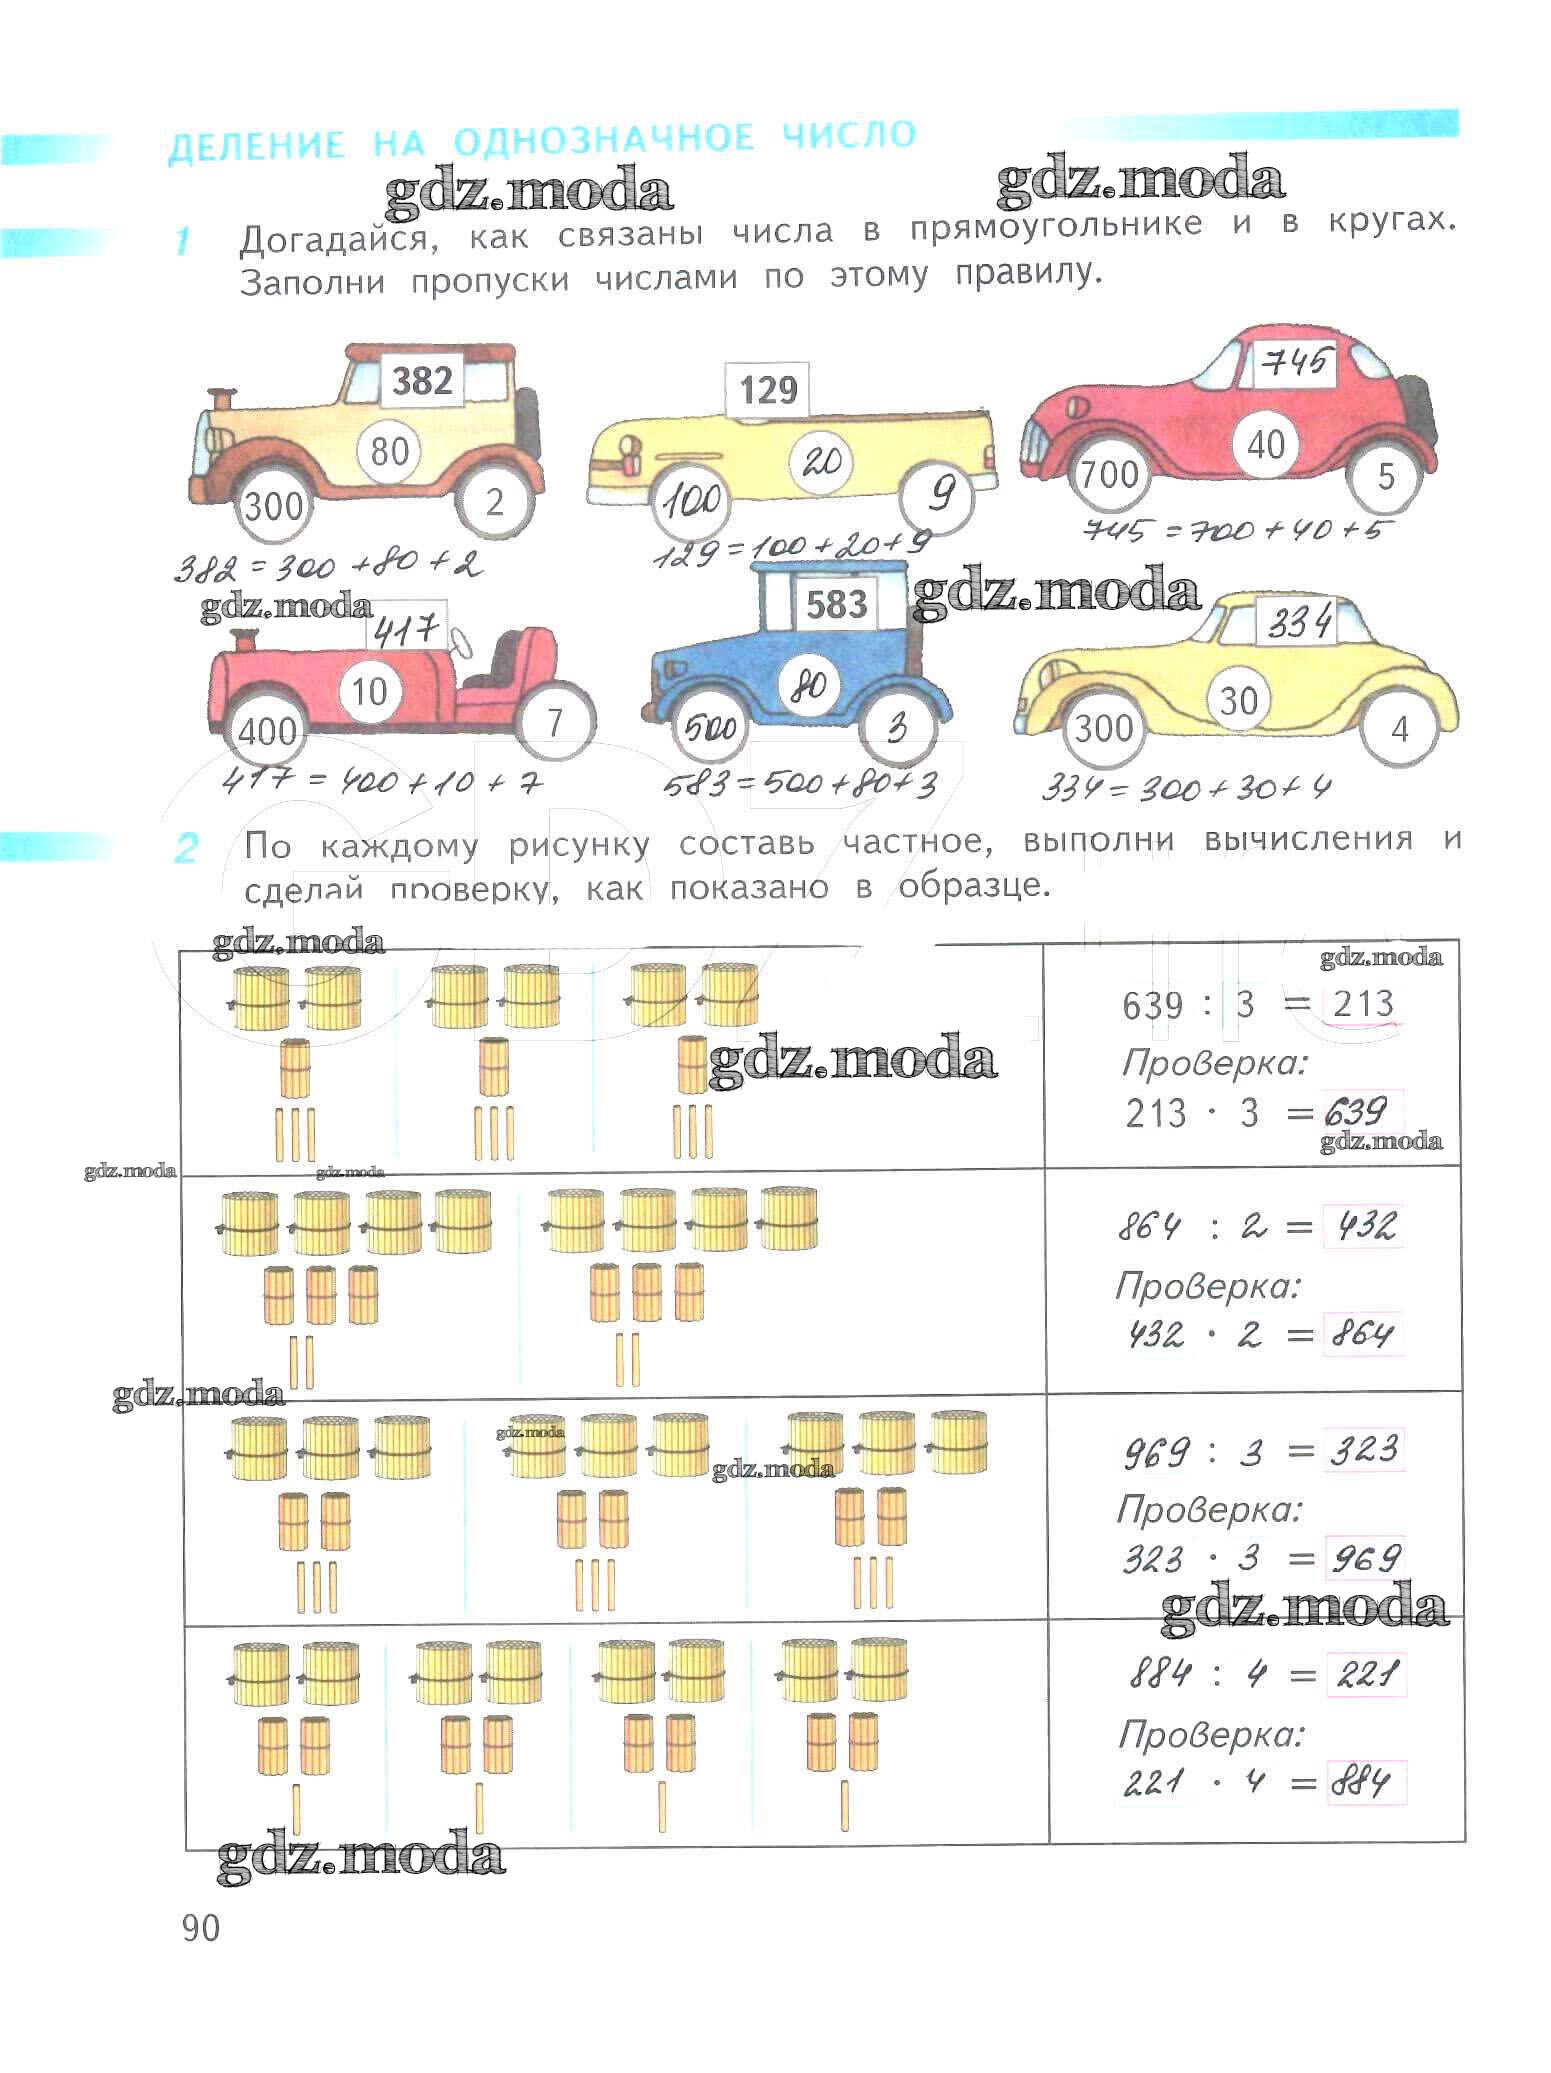 ДЕЛЕНИЕ НА ОДНОЗНАЧНОЕ ЧИСЛО
gdz.moda gdz.moda
1 Догадайся, как связаны числа в прямоугольнике и в кругах.
Заполни пропуски числами по этому правилу.
382 129 745
80 20 40
300 2 100 9 700 5
382 = 300 + 80 + 2 129 = 100 + 20 + 9 745 = 700 + 40 + 5
gdz.moda gdz.moda
417 583 334
10 80 30
400 7 500 3 300 4
417 = 400 + 10 + 7 583 = 500 + 80 + 3 334 = 300 + 30 + 4
2 По каждому рисунку составь частное, выполни вычисления и
сделай проверку, как показано в образце.
gdz.moda gdz.moda
639 : 3 = 213
gdz.moda Проверка:
213 · 3 = 639
gdz.moda
gdz.moda gdz.moda
864 : 2 = 432
Проверка:
432 · 2 = 864
gdz.moda
gdz.moda 969 : 3 = 323
gdz.moda
Проверка:
323 · 3 = 969
gdz.moda
884 : 4 = 221
Проверка:
221 · 4 = 884
gdz.moda
90